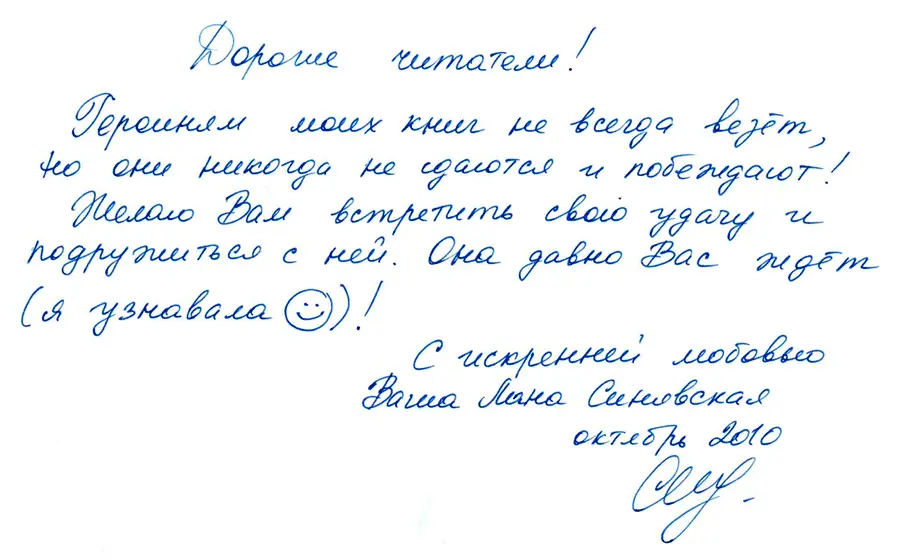 Дорогие читатели!
Героиням моих книг не всегда везёт,
но они никогда не сдаются и побеждают!
Желаю Вам встретить свою удачу и
подружиться с ней. Она давно Вас ждёт
(я узнавала 🙂)!
С искренней любовью
Ваша Лана Синявская
октябрь 2010